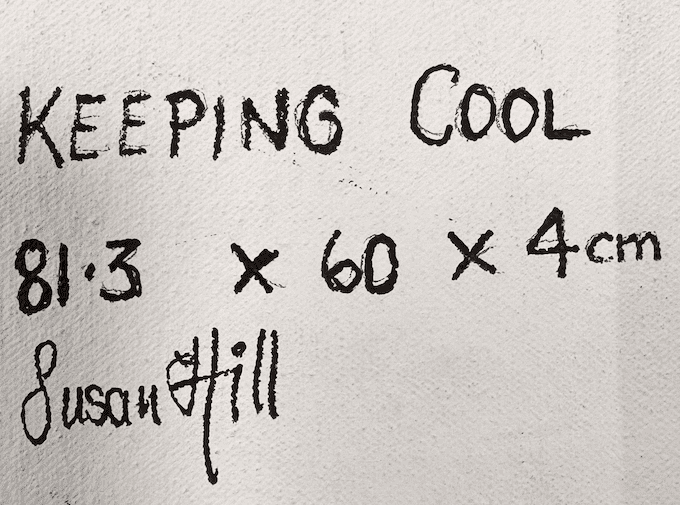 KEEPING COOL
81.3 x 60 x 4cm
Susan Hill